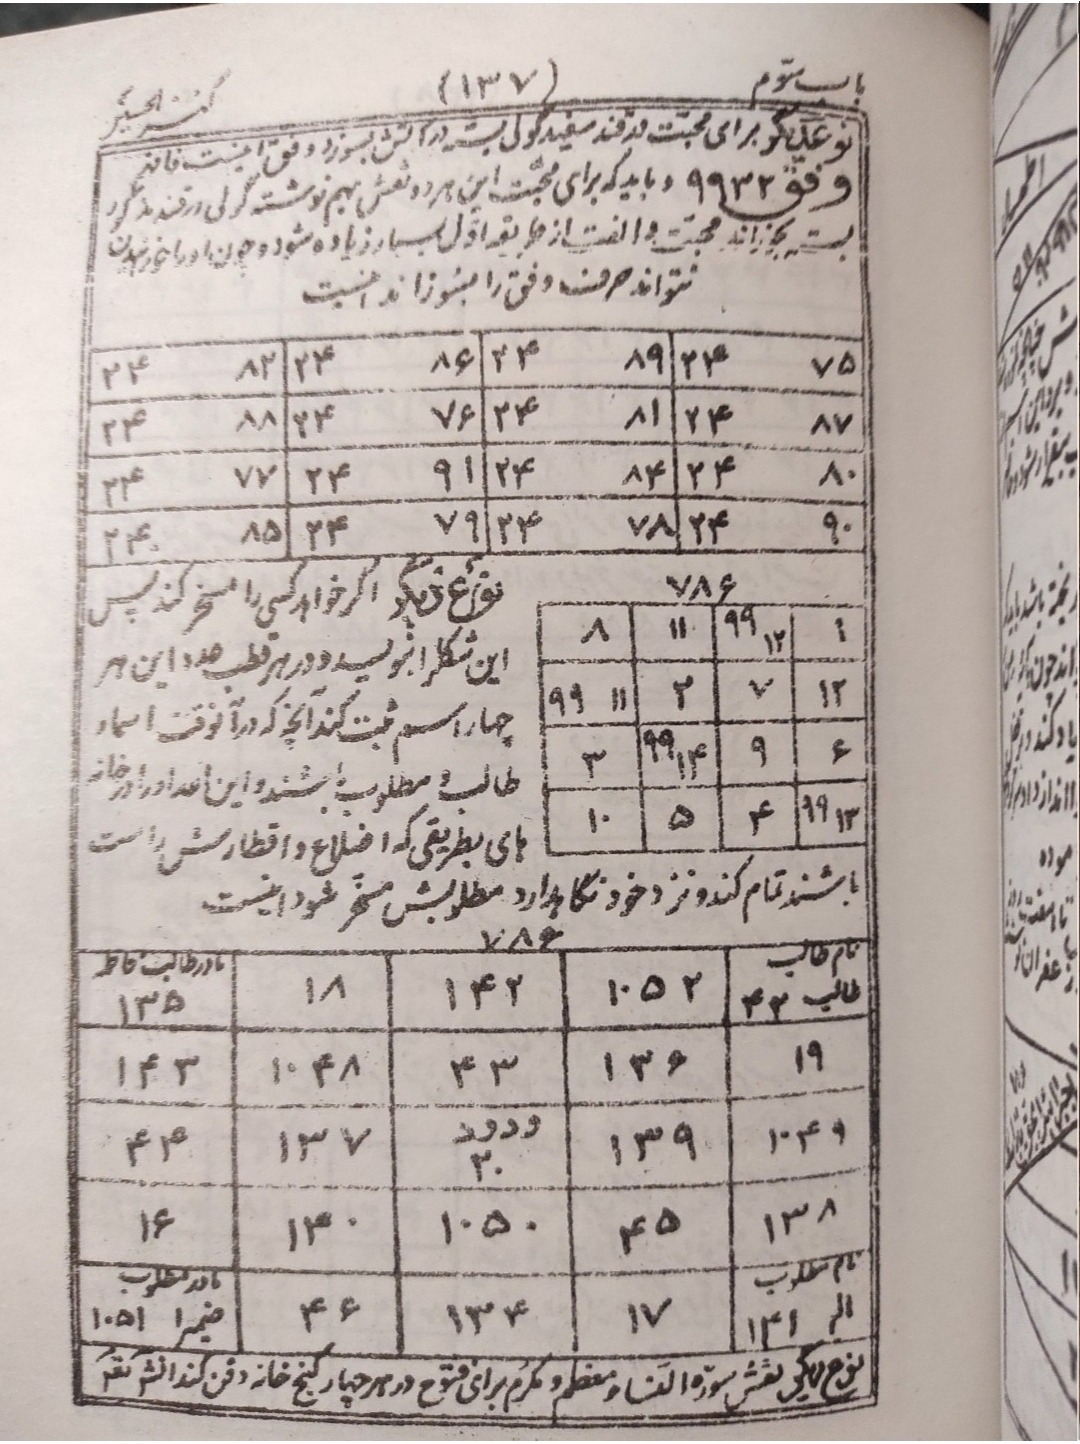 باب سوّم (۱۳۷) کنز الحسین
نوع دیگر برای محبّت در قند سفید گولی بسته در آتش بسوزد وفق اینست فائده
وفق ۹۹۳۲ و باید که برای محبّت این هر دو نقش بهم نوشته گولی در قند مذکور
بسته بسوزاند محبّت و الفت از طریقه اوّل بسیار زیاده شود و چون او را
نتواند هر هشت وفق را بسوزاند اینست
۷۵ ۲۴ ۸۹ ۲۴ ۸۶ ۲۴ ۸۲ ۲۴
۸۷ ۲۴ ۸۱ ۲۴ ۷۶ ۲۴ ۸۸ ۲۴
۸۰ ۲۴ ۸۴ ۲۴ ۹۱ ۲۴ ۷۷ ۲۴
۹۰ ۲۴ ۷۸ ۲۴ ۷۹ ۲۴ ۸۵ ۲۴
۷۸۶
۱ ۹۹۱۲ ۱۱ ۸
۱۲ ۷ ۲ ۹۹۱۱
۶ ۹ ۹۹۱۴ ۳
۹۹۱۳ ۴ ۵ ۱۰
نوع دیگر اگر خواهد کسی را مسخر کند پس
این شکل را بنویسد و در هر قطب عدد این هر
چهار اسم ثبت کند آنچه که در آنوقت اسماء
طالب و مطلوب باشند و این اعداد را در خانه
های بطریقی که اضلاع و اقطارش راست
باشند تمام کند و نزد خود نگاه دارد مطلوبش مسخّر شود اینست
۷۸۶
نام طالب طالب ۴۲ ۱۰۵۲ ۱۴۲ ۱۸ مادر طالب فاطمه ۱۳۵
۱۹ ۱۳۶ ۴۳ ۱۰۴۸ ۱۴۳
۱۰۴۹ ۱۳۹ ودود ۲۰ ۱۳۷ ۴۴
۱۳۸ ۴۵ ۱۰۵۰ ۱۴۰ ۱۶
نام مطلوب ۱۴۱ ۱۷ ۱۳۴ ۴۶ مادر مطلوب ۱۰۵۱
نوع دیگر نقش سورة النساء معظم و مکرم برای فتوح در هر چهار کنج خانه دفن کند